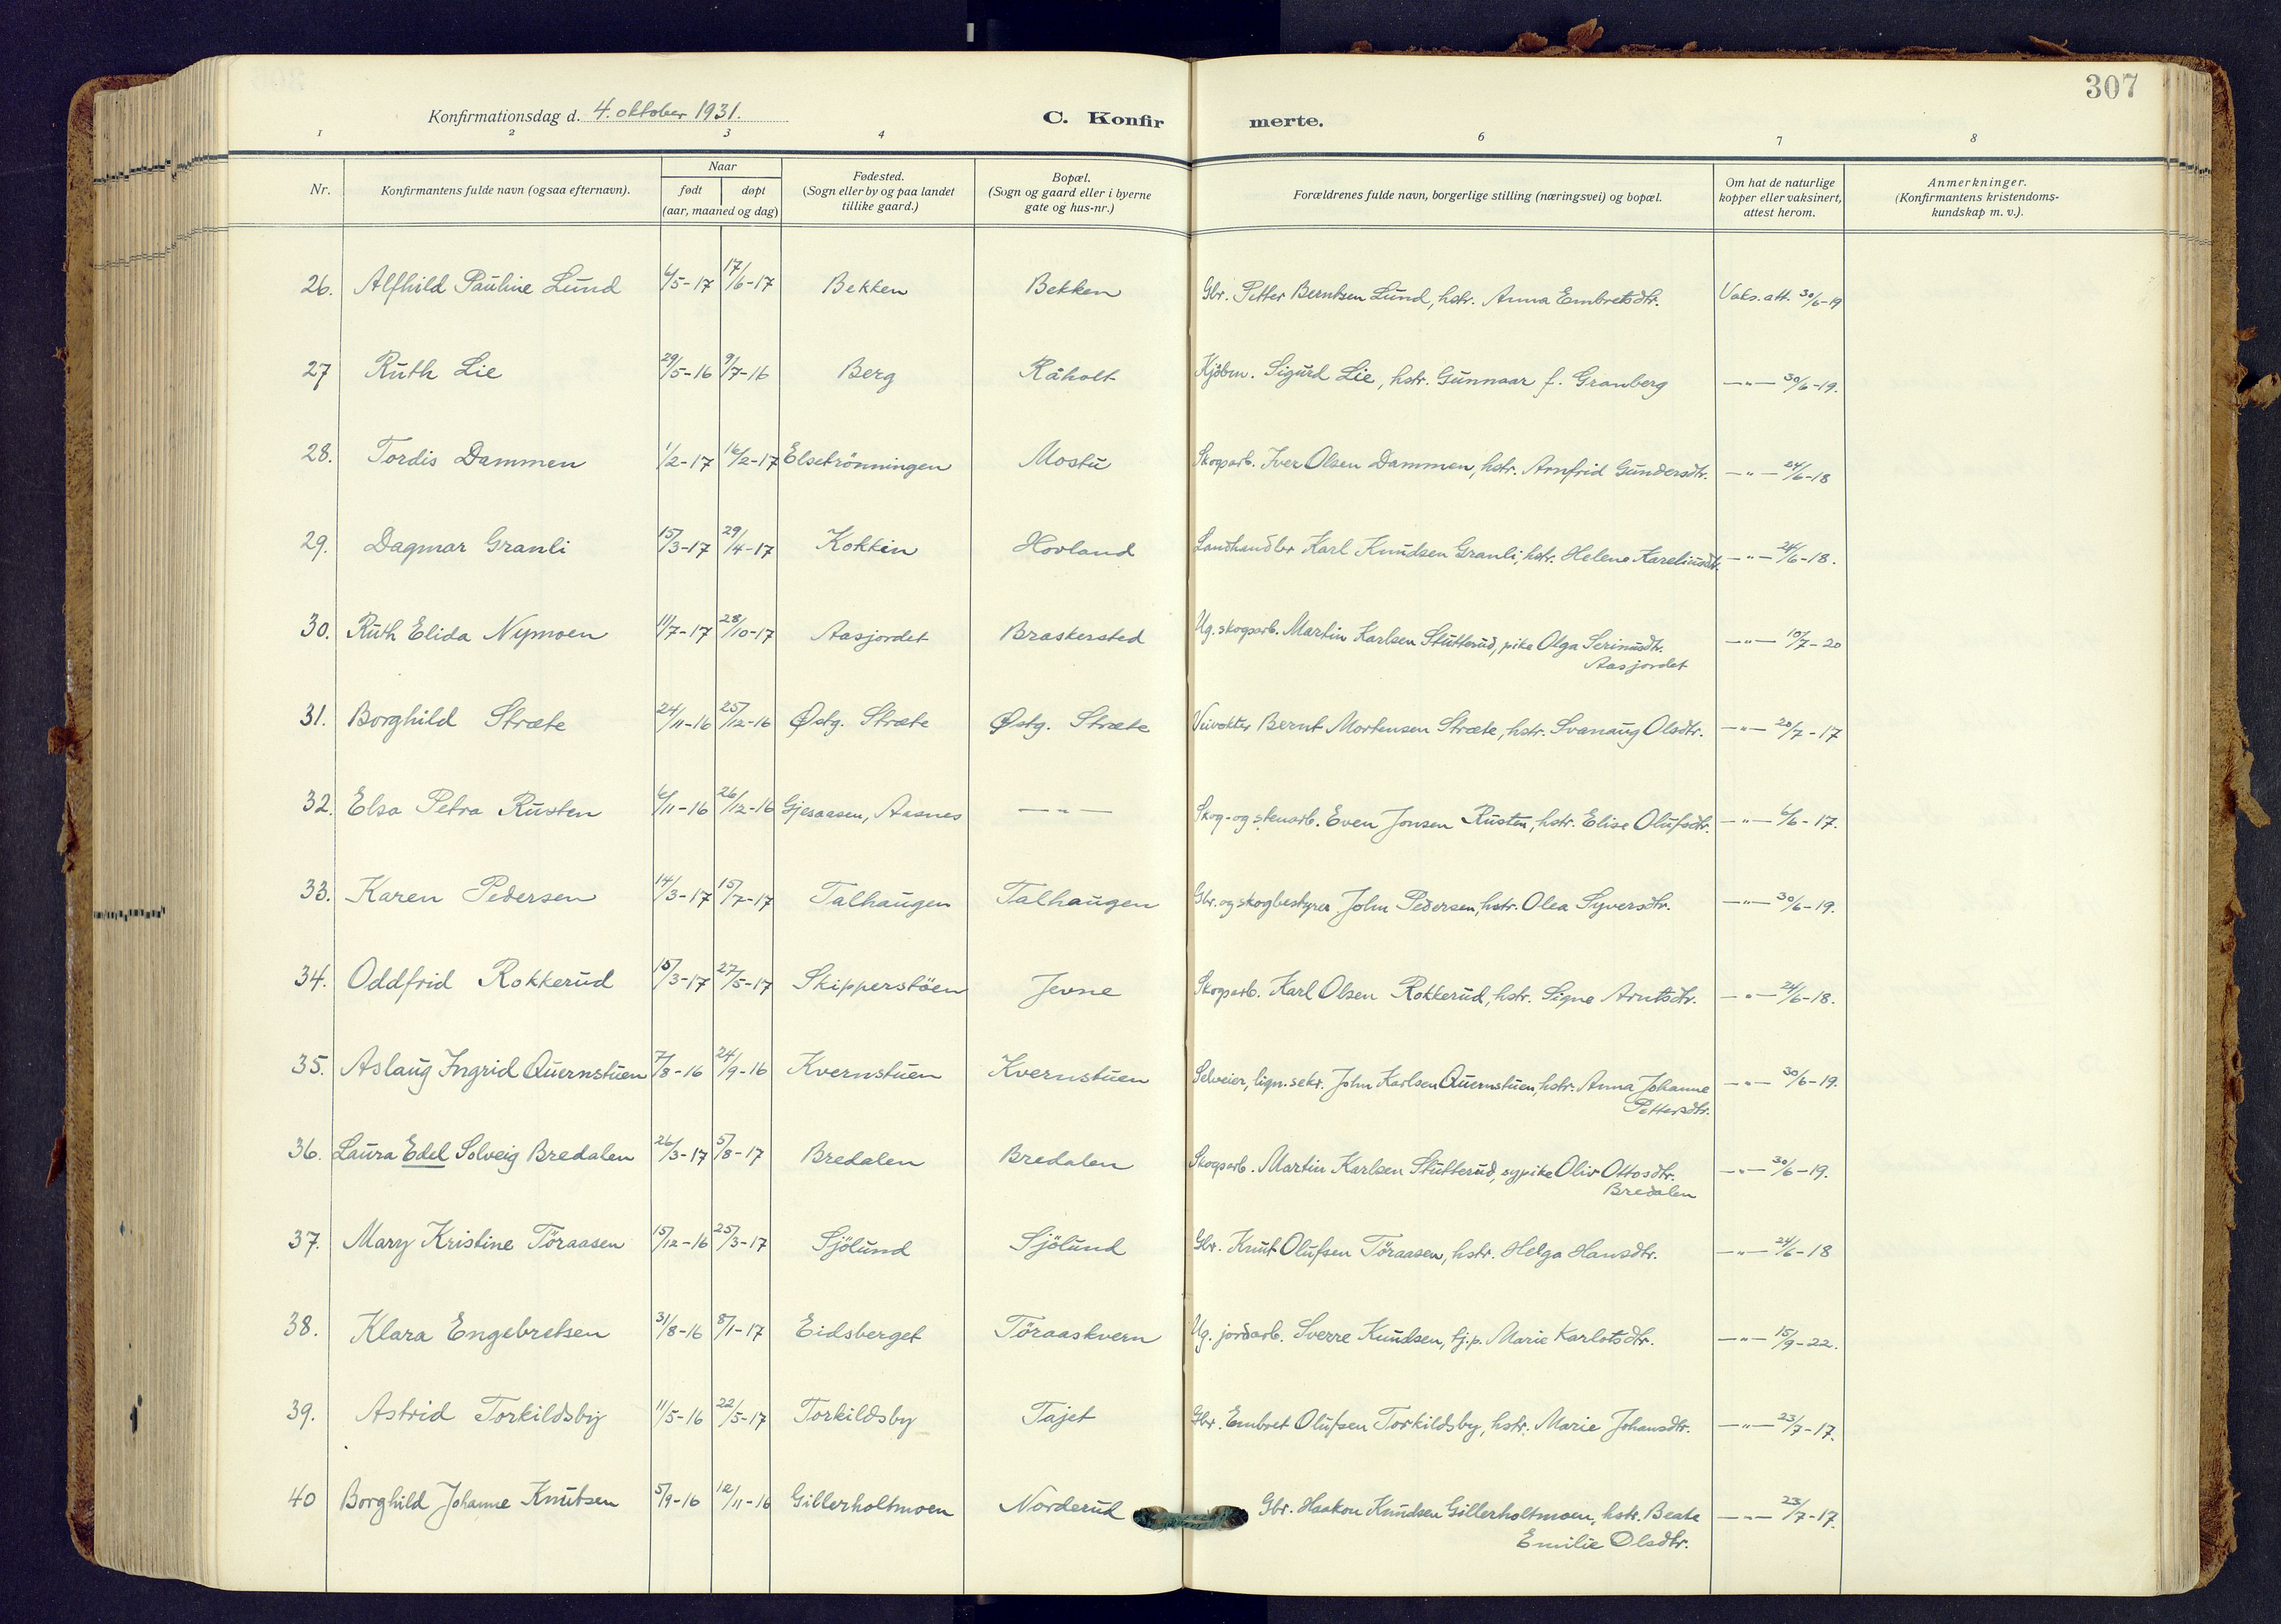 307
Konfirmationsdag d. 4. oktober 1931.
C. Konfir merte.
1 2 3 4 6 7 8
Nr.
Konfirmantens fulde navn (ogsaa efternavn).
Naar
født døpt
(aar, maaned og dag)
Fødested.
(Sogn eller by og paa landet
tillike gaard.)
Bopæl.
(Sogn og gaard eller i byerne
gate og hus-nr.)
Forældrenes fulde navn, borgerlige stilling (næringsvei) og bopæl.
Om hat de naturlige
kopper eller vaksinert,
attest herom.
Anmerkninger.
(Konfirmantens kristendoms-
kundskap m. v.).
26. Alfhild Pauline Lund 6/5-17 17/6-17 Bekken Bekken Gbr. Petter Berntsen Lund, hstr. Anna Embretsdtr. Vaks. att. 30/6-19
27 Ruth Lie 29/5-16 9/7-16 Berg Råholt Kjøbm. Sigurd Lie, hstr. Gunnaar f. Granberg —"— 30/6-19.
28. Tordis Dammen 1/2-17 16/2-17 Elsetrönningen Mostu Skogsarb. Iver Olsen Dammen, hstr. Arnfrid Gundersdtr. —"— 24/6-18
29. Dagmar Granli 15/3-17 29/4-17 Kokkin Hovland Landhandler Karl Knudsen Granli, hstr. Helene Karelinusdtr. —"— 24/6-18.
30. Ruth Elida Nymoen 11/7-17 28/10-17 Aasjordet Braskersted Ug. skogsarb. Martin Karlsen Stutterud, pike Olga Serinusdtr.
Aasjordet —"— 10/7-20
31. Borghild Stræte 24/11-16 25/12-16 Østg. Stræte Østg. Stræte Veivokter Bernt Mortensen Stræte, hstr. Svanaug Olsdtr. —"— 20/7-17
32. Elsa Petra Rusten 6/11-16 26/12-16 Gjesaasen, Aasnes —"— Skog- og stenarb. Even Jonsen Rusten, hstr. Elise Olufsdtr. —"— 6/6-17.
33. Karen Pedersen 14/3-17 15/7-17 Talhaugen Talhaugen Gbr. og skogbestyrer John Pedersen, hstr. Olea Syversdtr. —"— 30/6-19.
34. Oddfrid Rokkerud 15/3-17 27/5-17 Skipperstöen Jevne Skogsarb. Karl Olsen Rokkerud, hstr. Signe Arntsdtr. —"— 24/6-18.
35. Aslaug Ingrid Quernstuen 7/8-16 24/9-16 Kvernstuen Kvernstuen Selveier, lign. sekr. John Karlsen Quernstuen, hstr. Anna Johanne
Pettersdtr. —"— 30/6-19.
36. Laura Edel Solveig Bredalen 26/3-17 5/8-17 Bredalen Bredalen Skogsarb. Martin Karlsen Stutterud, sypike Oliv Ottosdtr.
Bredalen —"— 30/6-19.
37. Mary Kristine Töraasen 15/12-16 25/3-17 Sjölund Sjölund Gbr. Knut Olufsen Töraasen, hstr. Helga Hansdtr. —"— 24/6-18
38. Klara Engebretsen 31/8-16 8/1-17 Eidsberget Töraaskvern Ug. jordarb. Sverre Knudsen, tj.p. Marie Karlotsdtr. —"— 15/9-22.
39. Astrid Torkildsby 11/5-16 22/5-17 Torkildsby Tajet Gbr. Embret Olufsen Torkildsby, hstr. Marie Johansdtr. —"— 23/7-17.
40 Borghild Johanne Knutsen 5/9-16 12/11-16 Gillerholtmoen Norderud Gbr. Haakon Knudsen Gillerholtmoen, hstr. Beate
Emilie Olsdtr. —"— 23/7-17.